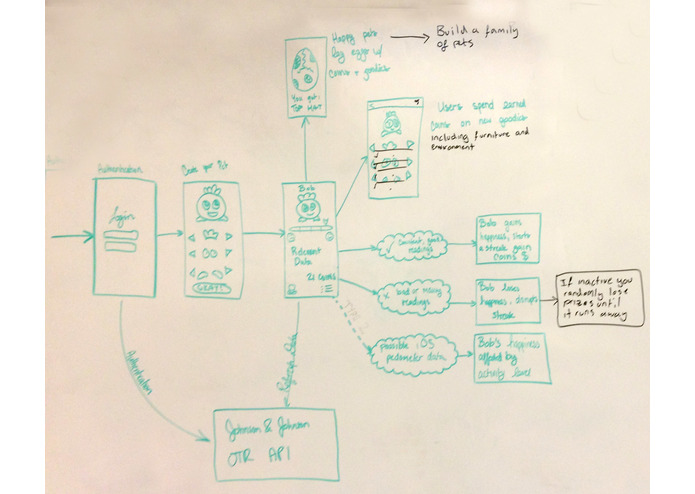 Happy pets
lay eggs w/
coins + goodies
Build a family
of pets
You got:
TOP HAT
Users spend earned
coins on new goodies
including furniture and
environment
Authentication
Login
Create your Pet
GREAT!
Bob
Relevant
Data
21 coins
consistent, good
readings
Bob gains
happiness, starts
a streak gain
coins $
bad or missing
readings
Bob loses
happiness, disrupts
streak
If inactive you
randomly lose
prizes until
it runs away
TYPE 2
possible iOS
pedometer data
Bob's happiness
affected by
activity level
Authentication
Data
Johnson & Johnson
OTR API